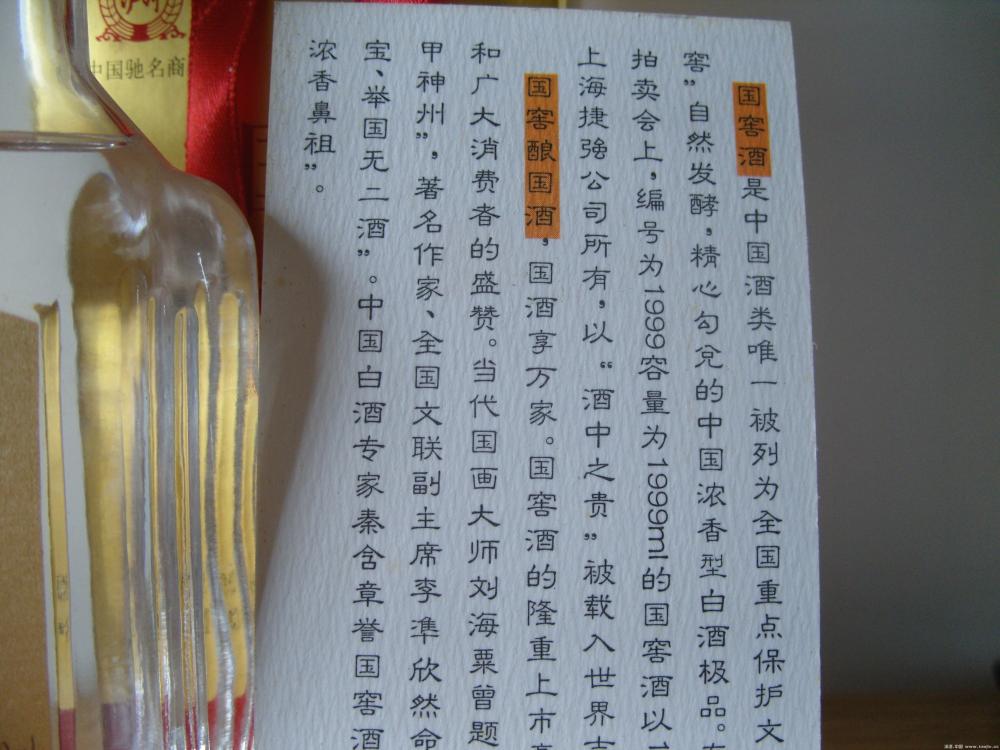 国窖酒是中国酒类唯一被列为全国重点保护文
窖”自然发酵，精心勾兑的中国浓香型白酒极品。
拍卖会上，编号为1999容量为1999ml的国窖酒以
上海捷强公司所有，以“酒中之贵”被载入世界
国窖酿国酒，国酒享万家。国窖酒的隆重上市
和广大消费者的盛赞。当代国画大师刘海粟曾题
甲神州”，著名作家、全国文联副主席李凖欣然命
宝、举国无二酒”。中国白酒专家秦含章誉国窖酒
浓香鼻祖”。
中国驰名商